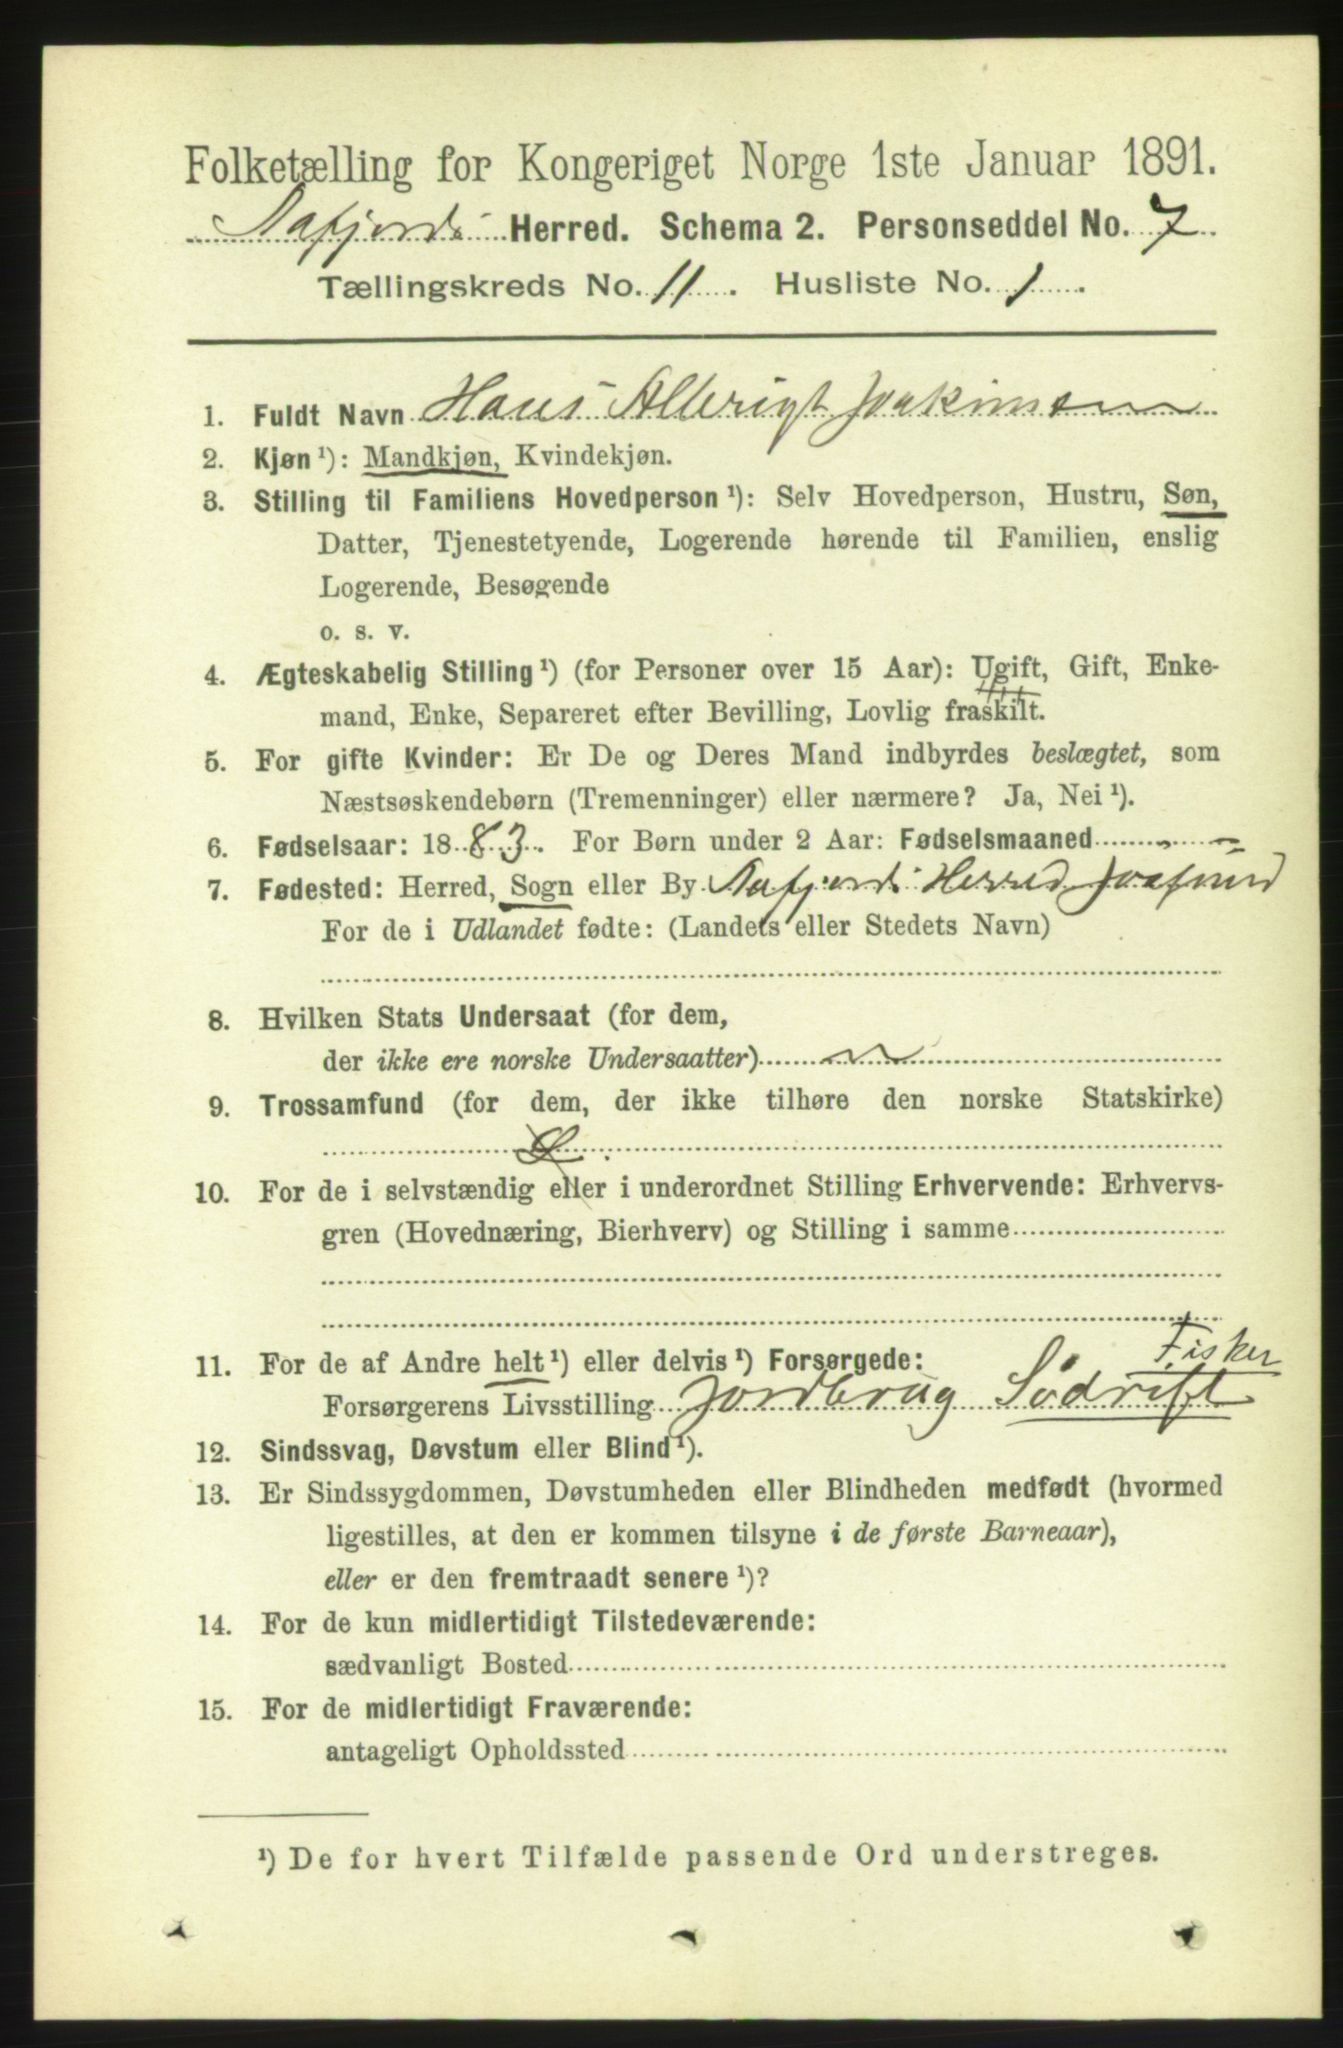 Folketælling for Kongeriget Norge 1ste Januar 1891.
Aafjords Herred. Schema 2. Personseddel No. 7
Tællingskreds No. 11. Husliste No. 1.
1. Fuldt Navn Hans Albrigt Joakimsen
2. Kjøn ¹): Mandkjøn, Kvindekjøn.
3. Stilling til Familiens Hovedperson ¹): Selv Hovedperson, Hustru, Søn,
Datter, Tjenestetyende, Logerende hørende til Familien, enslig
Logerende, Besøgende
o. s. v.
4. Ægteskabelig Stilling ¹) (for Personer over 15 Aar): Ugift, Gift, Enke-
mand, Enke, Separeret efter Bevilling, Lovlig fraskilt.
5. For gifte Kvinder: Er De og Deres Mand indbyrdes beslægtet, som
Næstsøskendebørn (Tremenninger) eller nærmere? Ja, Nei ¹).
6. Fødselsaar: 1883. For Børn under 2 Aar: Fødselsmaaned
7. Fødested: Herred, Sogn eller By Aafjords Herred
For de i Udlandet fødte: (Landets eller Stedets Navn)
8. Hvilken Stats Undersaat (for dem,
der ikke ere norske Undersaatter)
9. Trossamfund (for dem, der ikke tilhøre den norske Statskirke)
10. For de i selvstændig eller i underordnet Stilling Erhvervende: Erhvervs-
gren (Hovednæring, Bierhverv) og Stilling i samme
Fisker
11. For de af Andre helt ¹) eller delvis ¹) Forsørgede:
Forsørgerens Livsstilling Jordbrug Södrift
12. Sindssvag, Døvstum eller Blind ¹).
13. Er Sindssygdommen, Døvstumheden eller Blindheden medfødt (hvormed
ligestilles, at den er kommen tilsyne i de første Barneaar),
eller er den fremtraadt senere ¹)?
14. For de kun midlertidigt Tilstedeværende:
sædvanligt Bosted
15. For de midlertidigt Fraværende:
antageligt Opholdssted
¹) De for hvert Tilfælde passende Ord understreges.